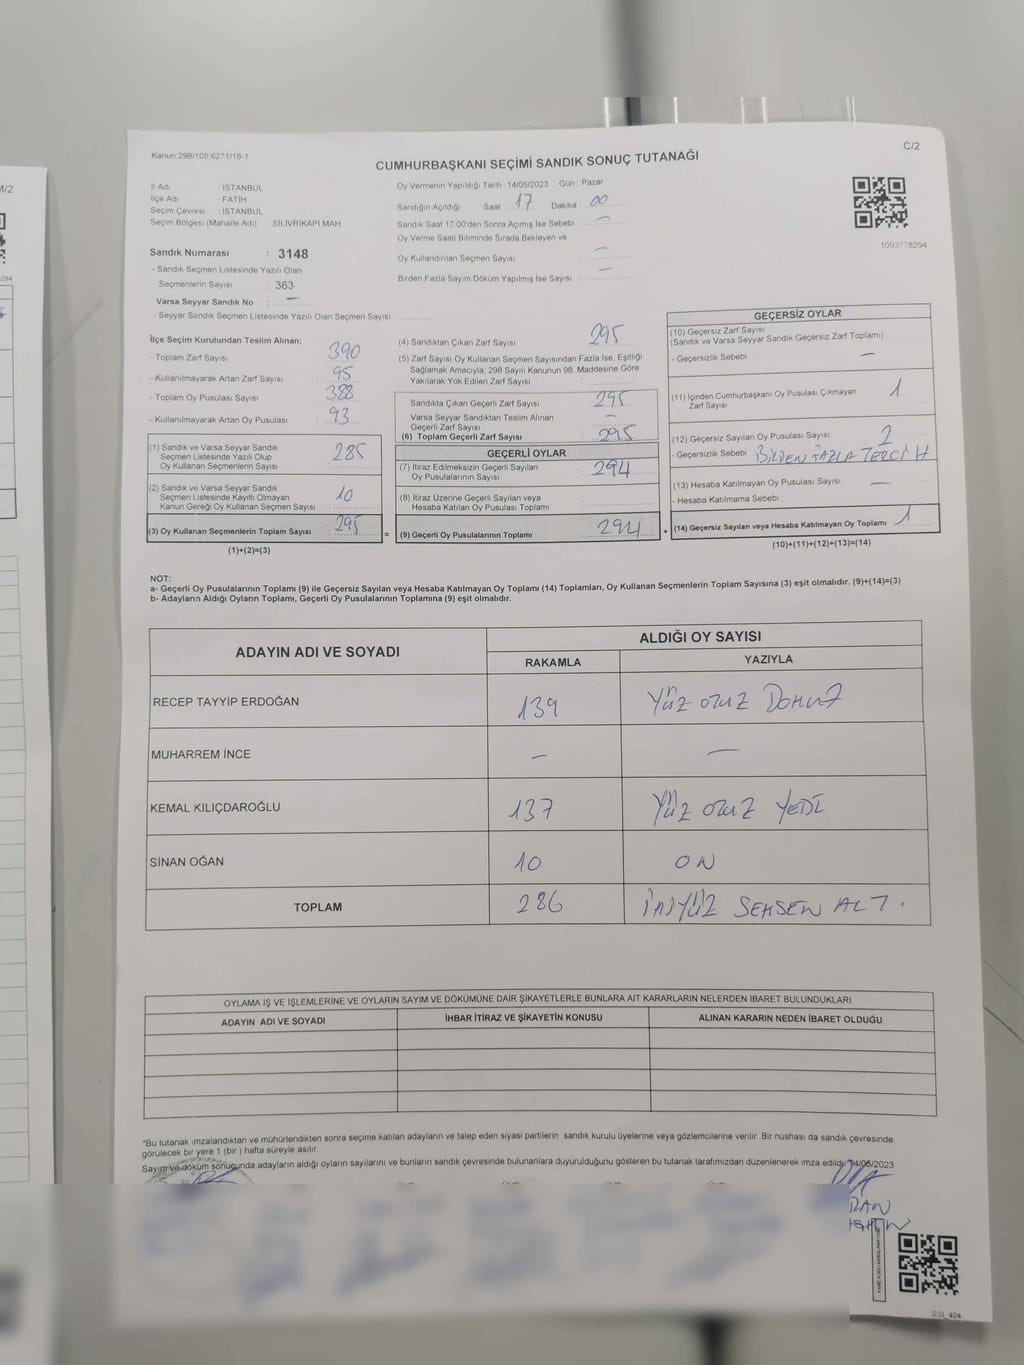 C/2
Kanun:298/105 6271/18-1
CUMHURBAŞKANI SEÇİMİ SANDIK SONUÇ TUTANAĞI
İl Adı : İSTANBUL
İlçe Adı : FATİH
Seçim Çevresi : İSTANBUL
Seçim Bölgesi (Mahalle Adı) SİLİVRİKAPI MAH
Sandık Numarası : 3148
- Sandık Seçmen Listesinde Yazılı Olan
Seçmenlerin Sayısı : 363
Varsa Seyyar Sandık No : —
- Seyyar Sandık Seçmen Listesinde Yazılı Olan Seçmen Sayısı
Oy Vermenin Yapıldığı Tarih : 14/05/2023 Gün : Pazar
Sandığın Açıldığı Saat : 17 Dakika : 00
Sandık Saat 17.00'den Sonra Açımış İse Sebebi : —
Oy Verme Saati Bitiminde Sırada Bekleyen ve
Oy Kullandırılan Seçmen Sayısı —
Birden Fazla Sayım Döküm Yapılmış İse Sayısı : —
1093778294
İlçe Seçim Kurulundan Teslim Alınan;
- Toplam Zarf Sayısı : 390
- Kullanılmayarak Artan Zarf Sayısı : 95
- Toplam Oy Pusulası Sayısı : 388
- Kullanılmayarak Artan Oy Pusulası : 93
(1) Sandık ve Varsa Seyyar Sandık
Seçmen Listesinde Yazılı Olup
Oy Kullanan Seçmenlerin Sayısı : 285
(2) Sandık ve Varsa Seyyar Sandık
Seçmen Listesinde Kayıtlı Olmayan
Kanun Gereği Oy Kullanan Seçmen Sayısı : 10
(3) Oy Kullanan Seçmenlerin Toplam Sayısı : 295
(1)+(2)=(3)
(4) Sandıktan Çıkan Zarf Sayısı : 295
(5) Zarf Sayısı Oy Kullanan Seçmen Sayısından Fazla İse, Eşitliği
Sağlamak Amacıyla, 298 Sayılı Kanunun 98. Maddesine Göre
Yakılarak Yok Edilen Zarf Sayısı :
Sandıkta Çıkan Geçerli Zarf Sayısı : 295
Varsa Seyyar Sandıktan Teslim Alınan
Geçerli Zarf Sayısı : —
(6) Toplam Geçerli Zarf Sayısı : 295
GEÇERLİ OYLAR
(7) İtiraz Edilmeksizin Geçerli Sayılan
Oy Pusulalarının Sayısı : 294
(8) İtiraz Üzerine Geçerli Sayılan veya
Hesaba Katılan Oy Pusulası Toplamı :
= (9) Geçerli Oy Pusulalarının Toplamı : 294
GEÇERSİZ OYLAR
(10) Geçersiz Zarf Sayısı
(Sandık ve Varsa Seyyar Sandık Geçersiz Zarf Toplamı)
- Geçersizlik Sebebi : —
(11) İçinden Cumhurbaşkanı Oy Pusulası Çıkmayan
Zarf Sayısı 1
(12) Geçersiz Sayılan Oy Pusulası Sayısı : 2
- Geçersizlik Sebebi BİRDEN FAZLA TERCİH
(13) Hesaba Katılmayan Oy Pusulası Sayısı : —
- Hesaba Katılmama Sebebi :
+ (14) Geçersiz Sayılan veya Hesaba Katılmayan Oy Toplamı : 1
(10)+(11)+(12)+(13)=(14)
NOT:
a- Geçerli Oy Pusulalarının Toplamı (9) ile Geçersiz Sayılan veya Hesaba Katılmayan Oy Toplamı (14) Toplamları, Oy Kullanan Seçmenlerin Toplam Sayısına (3) eşit olmalıdır. (9)+(14)=(3)
b- Adayların Aldığı Oyların Toplamı, Geçerli Oy Pusulalarının Toplamına (9) eşit olmalıdır.
ADAYIN ADI VE SOYADI
ALDIĞI OY SAYISI
RAKAMLA YAZIYLA
RECEP TAYYİP ERDOĞAN 139 YÜZ OTUZ DOKUZ
MUHARREM İNCE — —
KEMAL KILIÇDAROĞLU 137 YÜZ OTUZ YEDİ
SİNAN OĞAN 10 ON
TOPLAM 286 İKİYÜZ SEKSEN ALTI.
OYLAMA İŞ VE İŞLEMLERİNE VE OYLARIN SAYIM VE DÖKÜMÜNE DAİR ŞİKAYETLERLE BUNLARA AİT KARARLARIN NELERDEN İBARET BULUNDUKLARI
ADAYIN ADI VE SOYADI İHBAR İTİRAZ VE ŞİKAYETİN KONUSU ALINAN KARARIN NEDEN İBARET OLDUĞU
*Bu tutanak imzalandıktan ve mühürlendikten sonra seçime katılan adayların ve talep eden siyasi partilerin sandık kurulu üyelerine veya gözlemcilerine verilir .Bir nüshası da sandık çevresinde
görülecek bir yere 1 (bir ) hafta süreyle asılır.
Sayım ve döküm sonucunda adayların aldığı oyların sayılarını ve bunların sandık çevresinde bulunanlara duyurulduğunu gösteren bu tutanak tarafımızdan düzenlenerek imza edildi. 14/05/2023